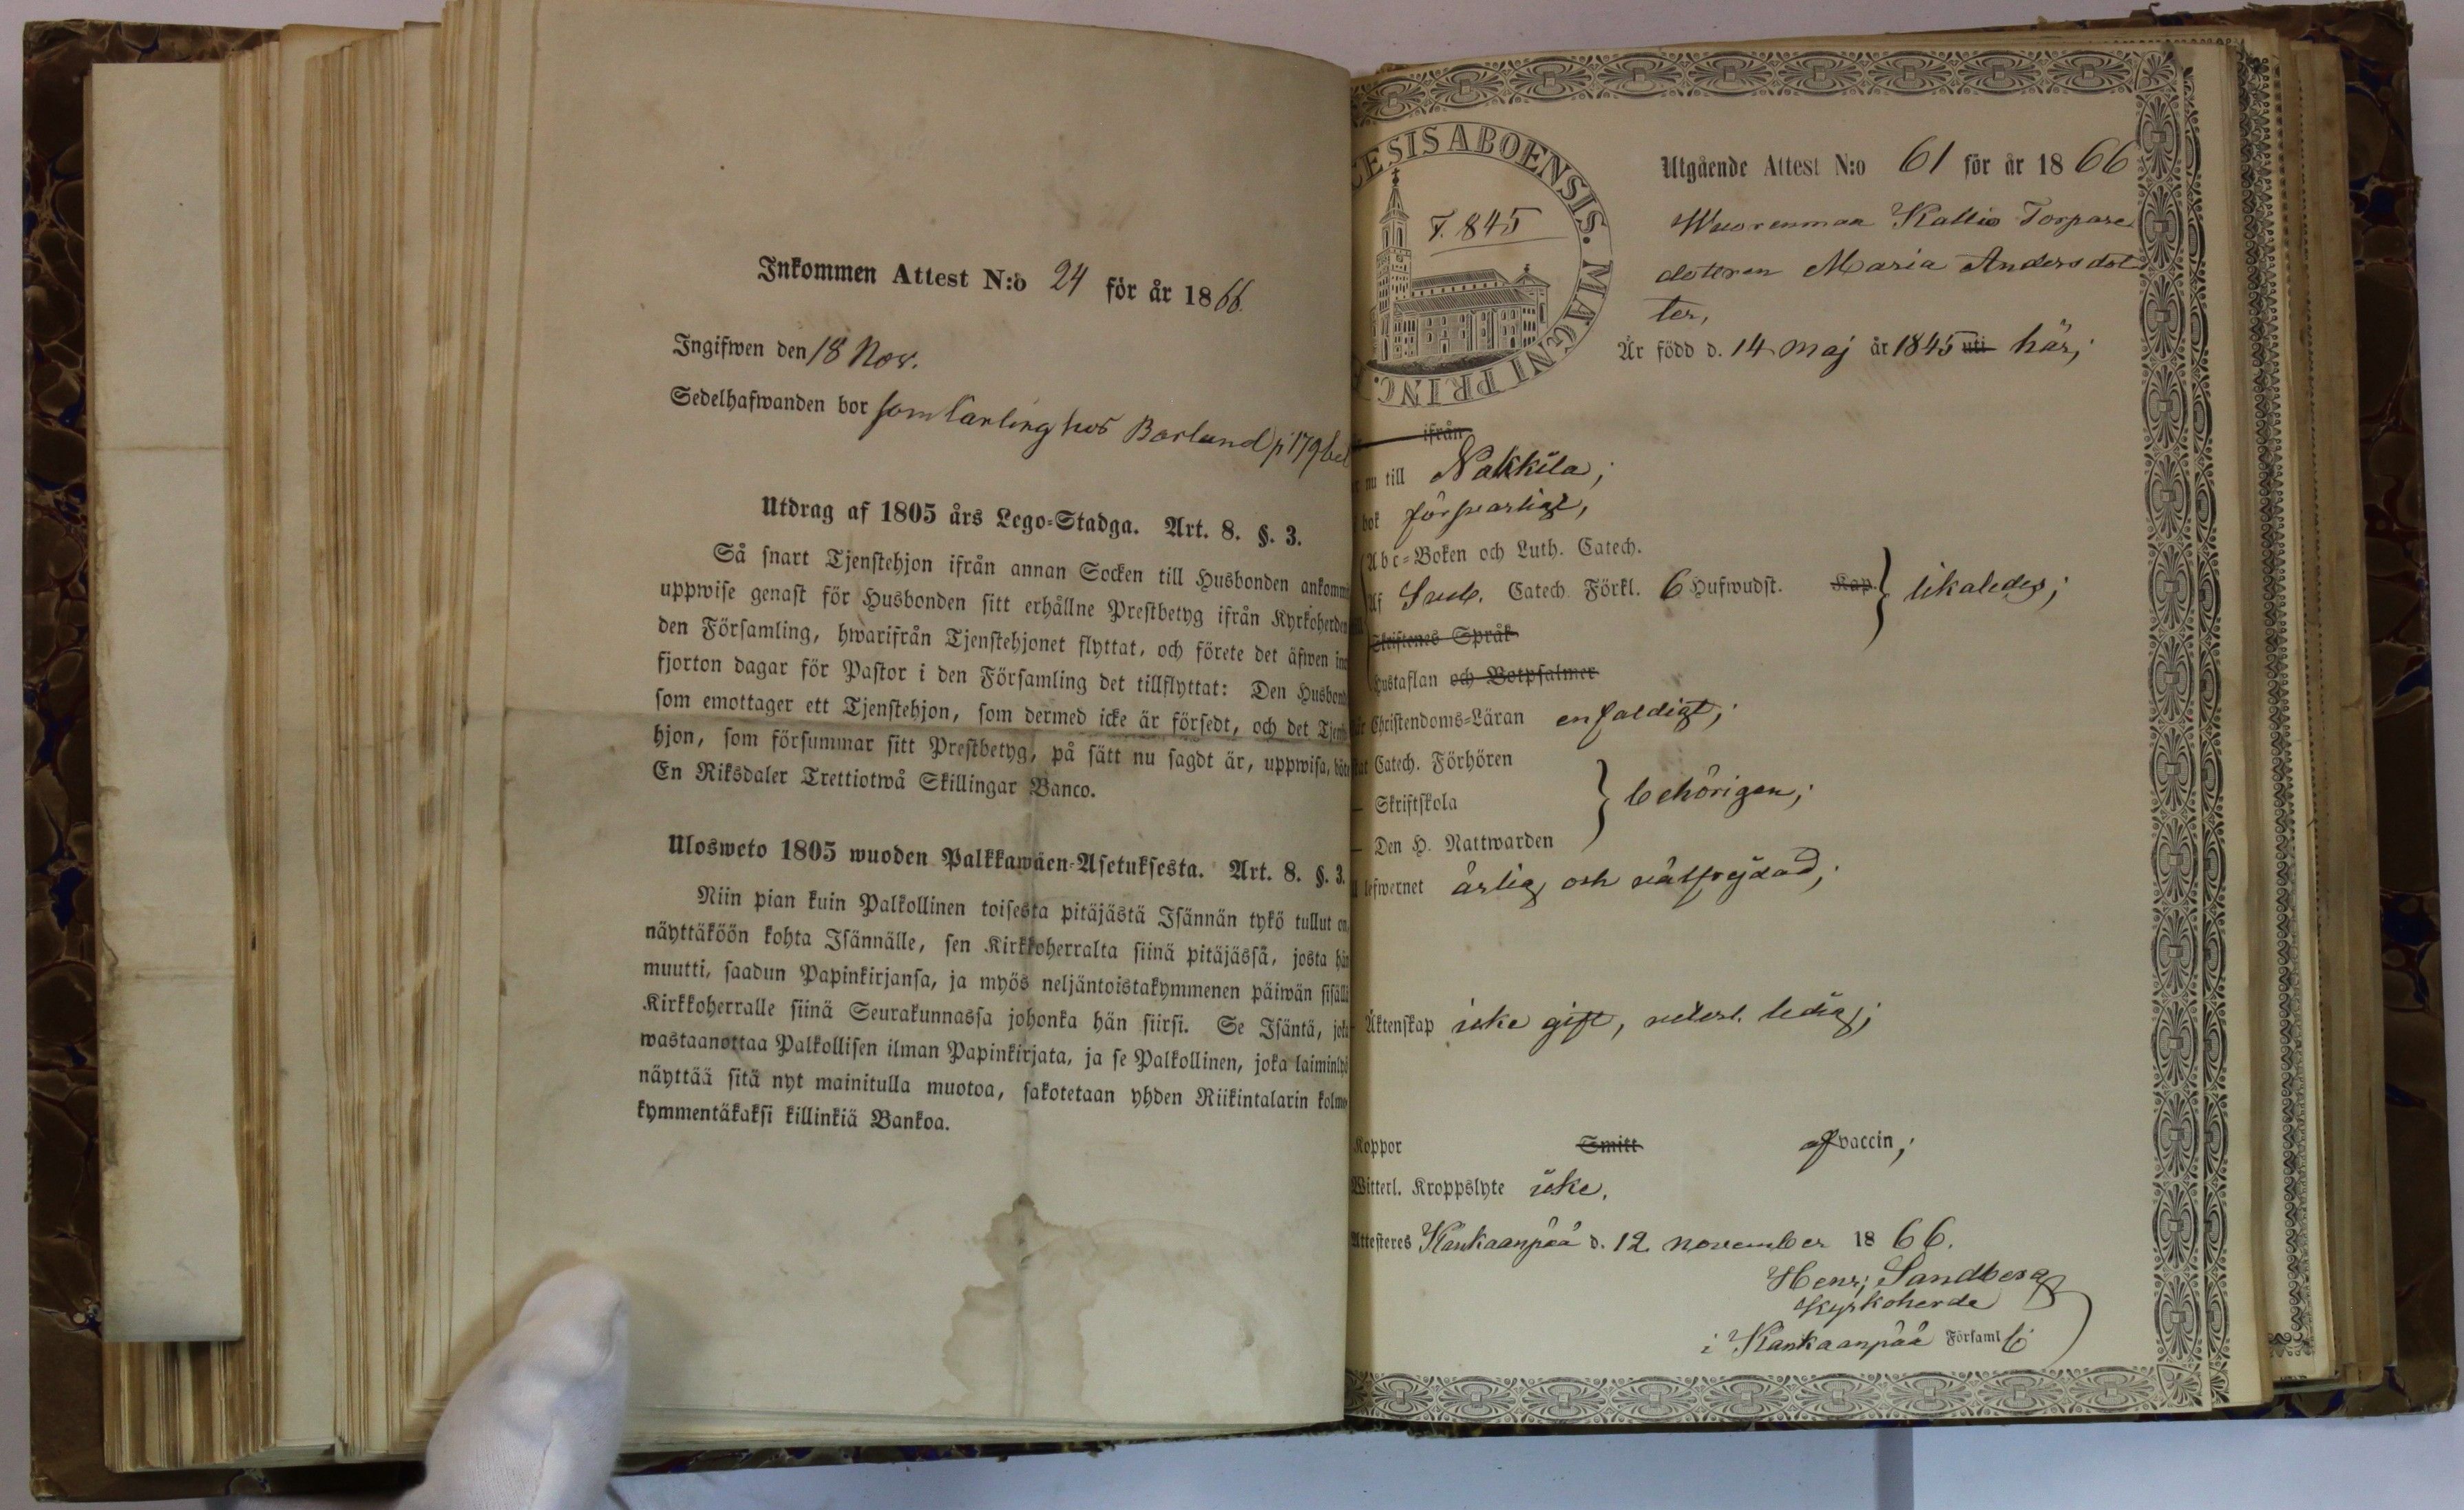 Inkommen Attest N:o 24 för år 1866.
Ingifwen den 18 Nov.
Sedelhafwanden bor som kärling hos Borlund p 179
Utdrag af 1805 års Lego-Stadga. Art. 8. §. 3.
Så snart Tjenstehjon ifrån annan Socken till Husbonden ankomm
uppwise genast för Husbonden sitt erhållne Prestbetyg ifrån Kyrkoherden
den Församling, hwarifrån Tjenstehjonet flyttat, och förete det äfwen in
fjorton dagar för Pastor i den Församling det tillflyttat: Den Husbond
som emottager ett Tjenstehjon, som dermed icke är försedt, och det Tjenst
hjon, som försummar sitt Prestbetyg, på sätt nu sagdt är, uppwisa, böte
En Riksdaler Trettiotwå Skillingar Banco.
Ulosweto 1805 wuoden Palkkawäen-Asetuksesta. Art. 8. §. 3.
Niin pian kuin Palkollinen toisesta pitäjästä Isännän tykö tullut on,
näyttäköön kohta Isännälle, sen Kirkkoherralta siinä pitäjässä, josta hän
muutti, saadun Papinkirjansa, ja myös neljäntoistakymmenen päiwän sisällä
Kirkkoherralle siinä Seurakunnassa johonka hän siirsi. Se Isäntä, joka
wastaanottaa Palkollisen ilman Papinkirjata, ja se Palkollinen, joka laiminlyö
näyttää sitä nyt mainitulla muotoa, sakotetaan yhden Riikintalarin kolme
kymmentäkaksi killinkiä Bankoa.
CESIS ABOENSIS. MAGNI PRINC.
F. 845
Utgående Attest N:o 61 för år 1866
Wuorenmaa Kallio Torpare
dottren Maria Andersdot
ter,
Är född d. 14 Maj år 1845 uti här;
ifrån
nu till Nakkila;
bok försvarligt,
Abc-Boken och Luth. Catech.
Af Sveb. Catech. Förkl. 6 Hufwudst. Kap. } likaledes;
Skriftenes Språk
Hustaflan och Botpsalmer
Christendoms-Läran enfaldigt;
Catech. Förhören
— Skriftskola } behörigen;
— Den H. Nattwarden
lefwernet ärlig och välfrejdad;
Äktenskap icke gift, veterl. ledig;
Koppor Smitt af vaccin;
Witterl. Kroppslyte icke.
Attesteres Kankaanpää d. 12 november 1866.
Henr; Sandberg
Kyrkoherde
i Kankaanpää Församl